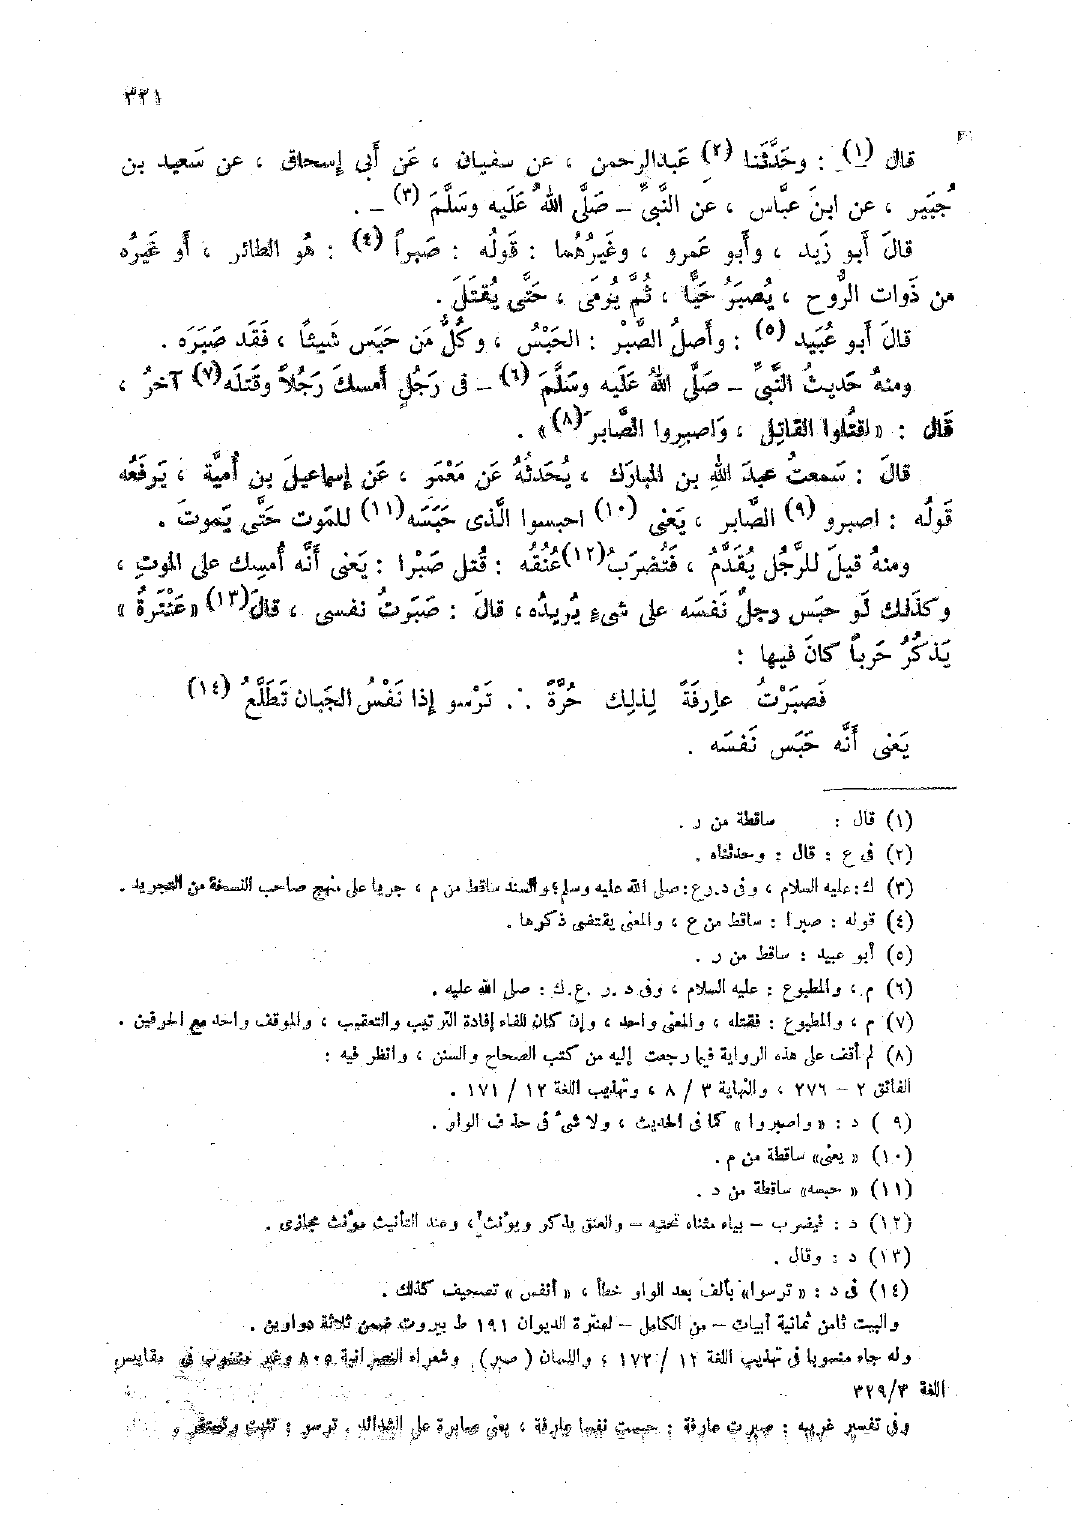 ٣٢١
قال (١) : وحَدَّثَنا (٢) عَبدالرحمن ، عن سفيان ، عَن أَبى إسحاق ، عن سَعيد بن
جُبَير ، عن ابنَ عبَّاس ، عن النَّبىِّ – صَلَّى اللهُ عَلَيه وسَلَّمَ (٣) – .
قالَ أَبو زَيد ، وأَبو عَمرو ، وغَيرُهُما : قَولُه : صَبراً (٤) : هُو الطائر ، أَو غَيرُه
من ذَوات الرُّوح ، يُصبَرُ حَيًّا ، ثُمَّ يُومَى ، حَتَّى يُقتَلَ .
قالَ أَبو عُبَيد (٥) : وأَصلُ الصَّبْر : الحَبْسُ ، وكُلُّ مَن حَبَس شَيئاً ، فَقَد صَبَرَه .
ومنهُ حَديثُ النَّبىِّ – صَلَّى اللهُ عَلَيه وسَلَّمَ (٦) – فى رَجُلٍ أَمسكَ رَجُلاً وقَتلَه (٧) آخرُ ،
قَال : « اقتُلوا القاتِل ، وَاصبِروا الصَّابرَ (٨) » .
قالَ : سَمعتُ عبدَ اللهِ بن المبارَك ، يُحَدثُهُ عَن مَعْمَر ، عَن إسماعيلَ بن أُميَّة ، يَرفَعُه
قَولُه : اصبرو (٩) الصَّابر ، يَعَنى (١٠) احبسوا الَّذى حَبَسَه (١١) للمَوت حَتَّى يَموتَ .
ومنهُ قيلَ للرَّجُل يُقَدَّمُ ، فَتُضرَبُ (١٢) عُنُقُه : قُتل صَبْرا : يَعَنى أَنَّه أُمسِك على الموتِ ،
وكذَلك لَو حبَس رجلٌ نَفسَه على شىءٍ يُريدُه ، قالَ : صَبَرتُ نفسى ، قالَ (١٣) « عَنْتَرَةُ »
يَذكُرُ حَرباً كانَ فيها :
فَصبَرْتُ عارِفَةً لِذلِك حُرَّةً ∴ تَرْسو إذا نَفْسُ الجَبان تَطَلَّعُ (١٤)
يَعَنى أَنَّه حَبَس نَفسَه .
(١) قال : ساقطة من ر .
(٢) فى ع : قال : وحدثناه .
(٣) ك: عليه السلام ، وفى د.ر.ع: صلى الله عليه وسلم؛ والسند ساقط من م ، جريا على منهج صاحب النسخة من التجريد .
(٤) قوله : صبرا : ساقط من ع ، والمعنى يقتضى ذكرها .
(٥) أبو عبيد : ساقط من ر .
(٦) م ، والمطبوع : عليه السلام ، وفى د. ر .ع.ك : صلى الله عليه .
(٧) م ، والمطبوع : فقتله ، والمعنى واحد ، وإن كان للفاء إفادة الترتيب والتعقيب ، والموقف واحد مع الحرفين .
(٨) لم أقف على هذه الرواية فيما رجعت إليه من كتب الصحاح والسنن ، وانظر فيه :
الفائق ٢ – ٢٧٦ ، والنهاية ٣ / ٨ ، وتهذيب اللغة ١٢ / ١٧١ .
(٩ ) د : « واصبروا » كما فى الحديث ، ولا شىء فى حذف الواو .
(١٠) « يعنى» ساقطة من م .
(١١) « حبسه» ساقطة من د .
(١٢) د : فيضرب – بياء مثناه تحتيه – والعنق يذكر ويؤنث ، وعند التأنيث مؤنث مجازى .
(١٣) د : وقال .
(١٤) فى د : « ترسوا» بألف بعد الواو خطأ ، « أنفس » تصحيف كذلك .
والبيت ثامن ثمانية أبيات – من الكامل – لعنترة الديوان ١٩١ ط بيروت ضمن ثلاثة دواوين .
وله جاء منسوبا فى تهذيب اللغة ١٢ / ١٧٢ ، واللسان ( صبر) وشعراء النصرانية ٨٠٥ وغير منسوب فى مقاييس
اللغة ٣/ ٣٢٩
وفى تفسير غريبه : صبرت عارفة : حبست نفسا عارفة ، يعنى صابرة على الشدائد . ترسو : تثبت وتستقر و